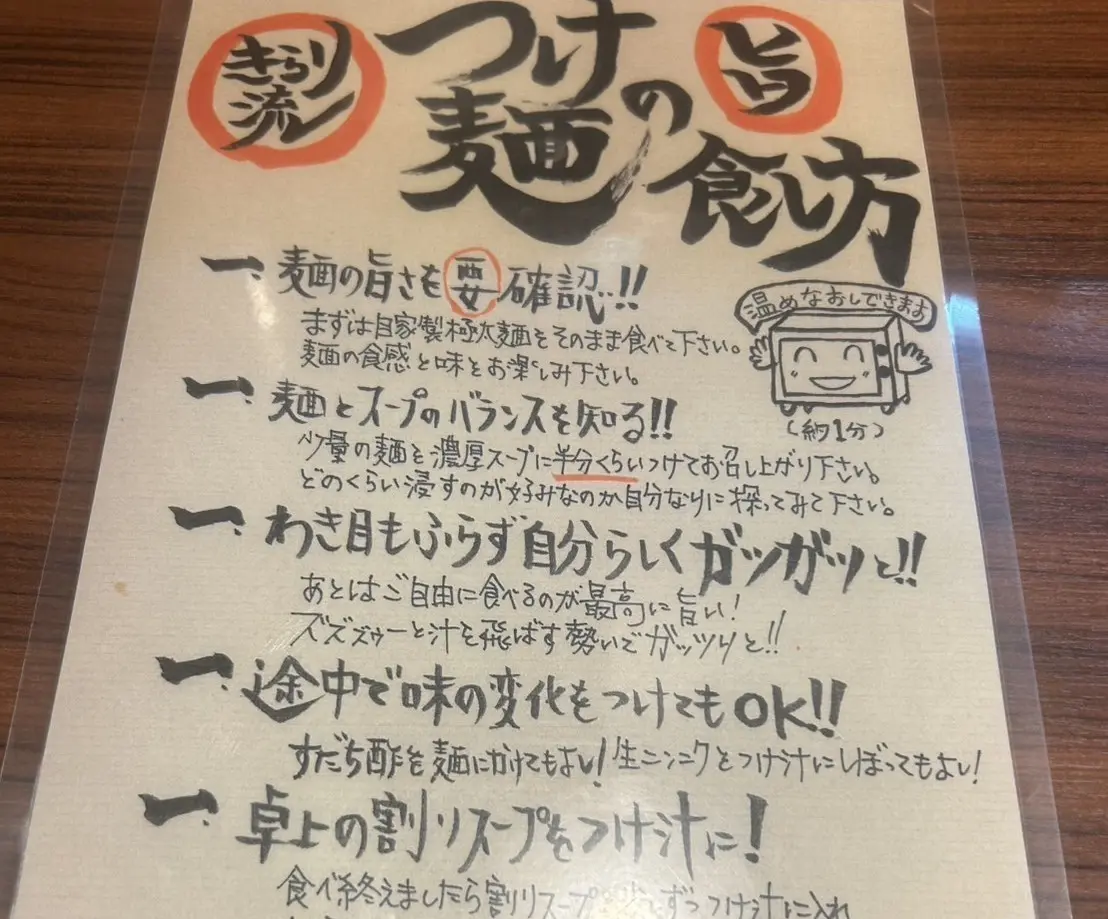 きらり流
つけ麺の
旨
食し方
一、麺の旨さを要確認!!
まずは自家製極太麺をそのまま食べて下さい。
麺の食感と味をお楽しみ下さい。
温めなおしできます
(約1分)
一、麺とスープのバランスを知る!!
少量の麺を濃厚スープに半分くらいつけてお召し上がり下さい。
どのくらい浸すのが好みなのか自分なりに探ってみて下さい。
一、わき目もふらず自分らしくガツガツと!!
あとはご自由に食べるのが最高に旨い!
ズズズゥーと汁を飛ばす勢いでガッツリと!!
一、途中で味の変化をつけてもOK!!
すだち酢を麺にかけてもよい!生ニンニクをつけ汁にしぼってもよい!
一、卓上の割りスープをつけ汁に!
食べ終えましたら割りスープを少しずつつけ汁に入れ